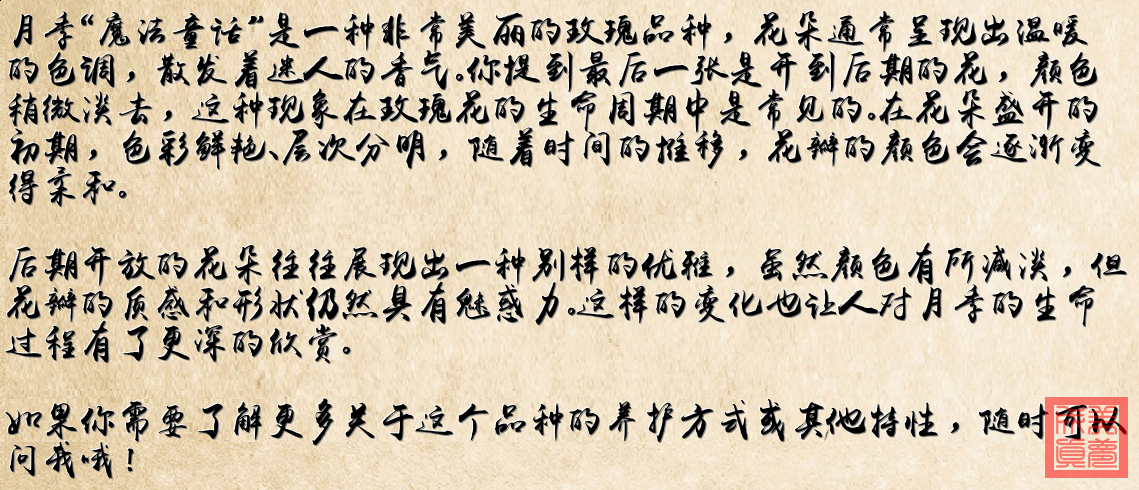 月季“魔法童话”是一种非常美丽的玫瑰品种，花朵通常呈现出温暖
的色调，散发着迷人的香气。你提到最后一张是开到后期的花，颜色
稍微淡去，这种现象在玫瑰花的生命周期中是常见的。在花朵盛开的
初期，色彩鲜艳、层次分明，随着时间的推移，花瓣的颜色会逐渐变
得柔和。
后期开放的花朵往往展现出一种别样的优雅，虽然颜色有所减淡，但
花瓣的质感和形状仍然具有魅惑力。这样的变化也让人对月季的生命
过程有了更深的欣赏。
如果你需要了解更多关于这个品种的养护方式或其他特性，随时可以
问我哦！